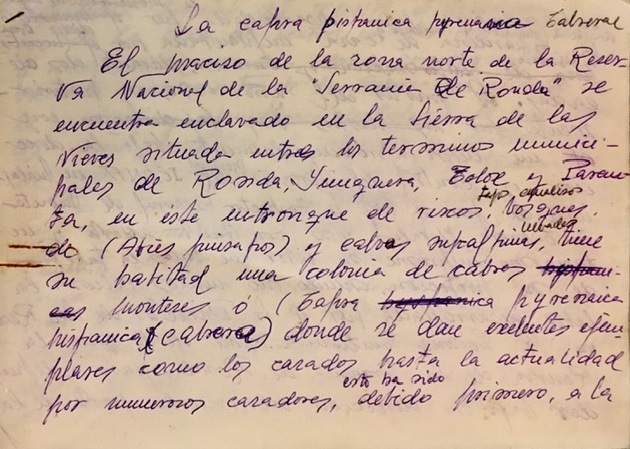 La capra pispanica pyrenaica Cabrera
El macizo de la zona norte de la Reser-
va Nacional de la "Serrania de Ronda" se
encuentra enclavado en la Sierra de las
Nieves situada entre los terminos munici-
pales de Ronda, Yunquera, Tolox y Parau-
ta, en éste entronque de riscos, tajos, bosques
de (Abies pinsapos) y cabras nevadas, tiene
su habitad una colonia de cabras
monteses ó (Capra pyrenaica
hispanica (cabrera) donde se dan exelentes ejem-
plares como los cazados hasta la actualidad
por numerosos cazadores, esto ha sido debido primero, a la